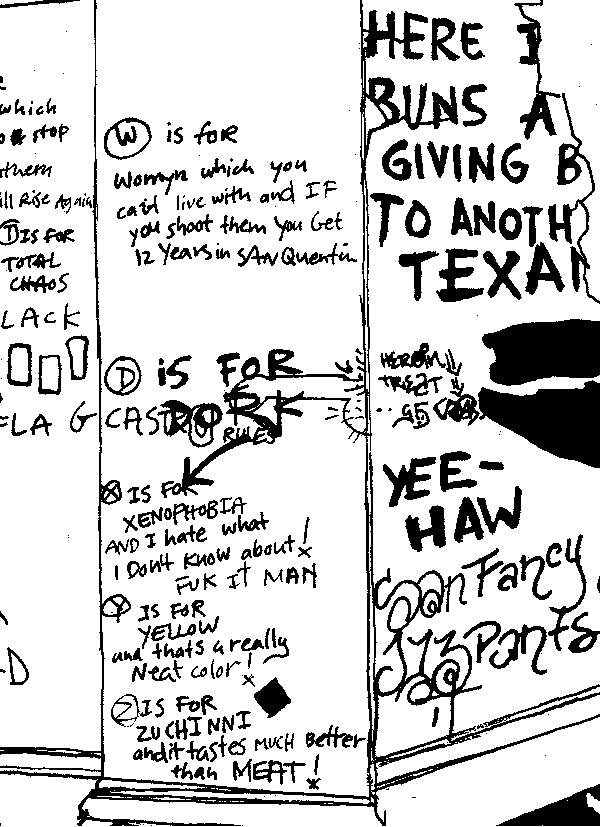 which
stop
thern
ill Rise Again
T IS FOR
TOTAL
CHAOS
LACK
FLAG
W is for
Womyn which you
cant live with and IF
you shoot them you Get
12 Years in SAN Quentin
D is FOR
DORK
CAST
RULES
X IS FOR
XENOPHOBIA
AND I hate what
I Don't Know about!
FUK IT MAN
Y IS FOR
YELLOW
and thats a really
Neat color!
Z IS FOR
ZUCHINNI
and it tastes MUCH Better
than MEAT!
HERE I
BUNS A
GIVING B
TO ANOTH
TEXAN
YEE-
HAW
San Fancy
Jyz Pants